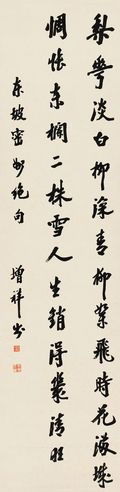 梨華淡白柳深青柳絮飛時花滿城
惆悵東欄二株雪人生銷得幾清明
東坡密州絕句
增祥書